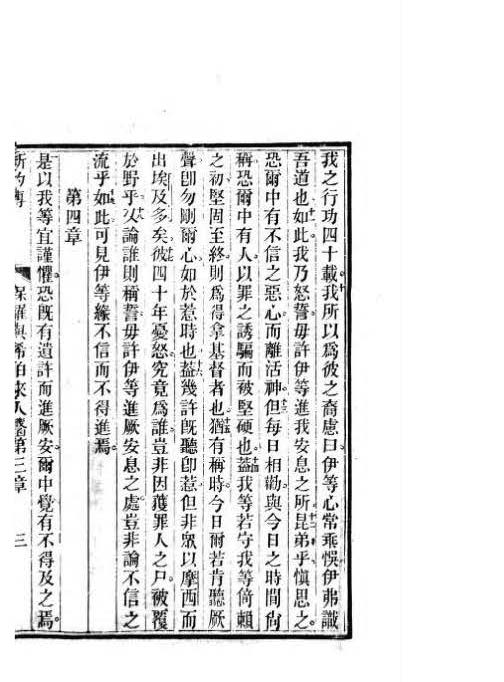 我之行功四十載我所以為彼之裔慮曰伊等心常乖悞伊弗識
吾道也如此我乃怒誓毋許伊等進我安息之所昆弟乎愼思之
恐爾中有不信之惡心而離活神但每日相勸與今日之時間尙
稱恐爾中有人以罪之誘騙而被堅硬也蓋我等若守我等倚賴
之初堅固至終則為得拿基督者也猶有稱時今日爾若肯聽厥
聲卽勿剛爾心如於惹時也蓋幾許旣聽卽惹但非眾以摩西而
出埃及多矣彼四十年憂怒究竟為誰豈非因獲罪人之尸被覆
於野乎又論誰則稱誓毋許伊等進厥安息之處豈非論不信之
流乎如此可見伊等緣不信而不得進焉
第四章
是以我等宜謹懼恐旣有遺許而進厥安爾中覺有不得及之焉
保羅與希伯來人 第三章 三